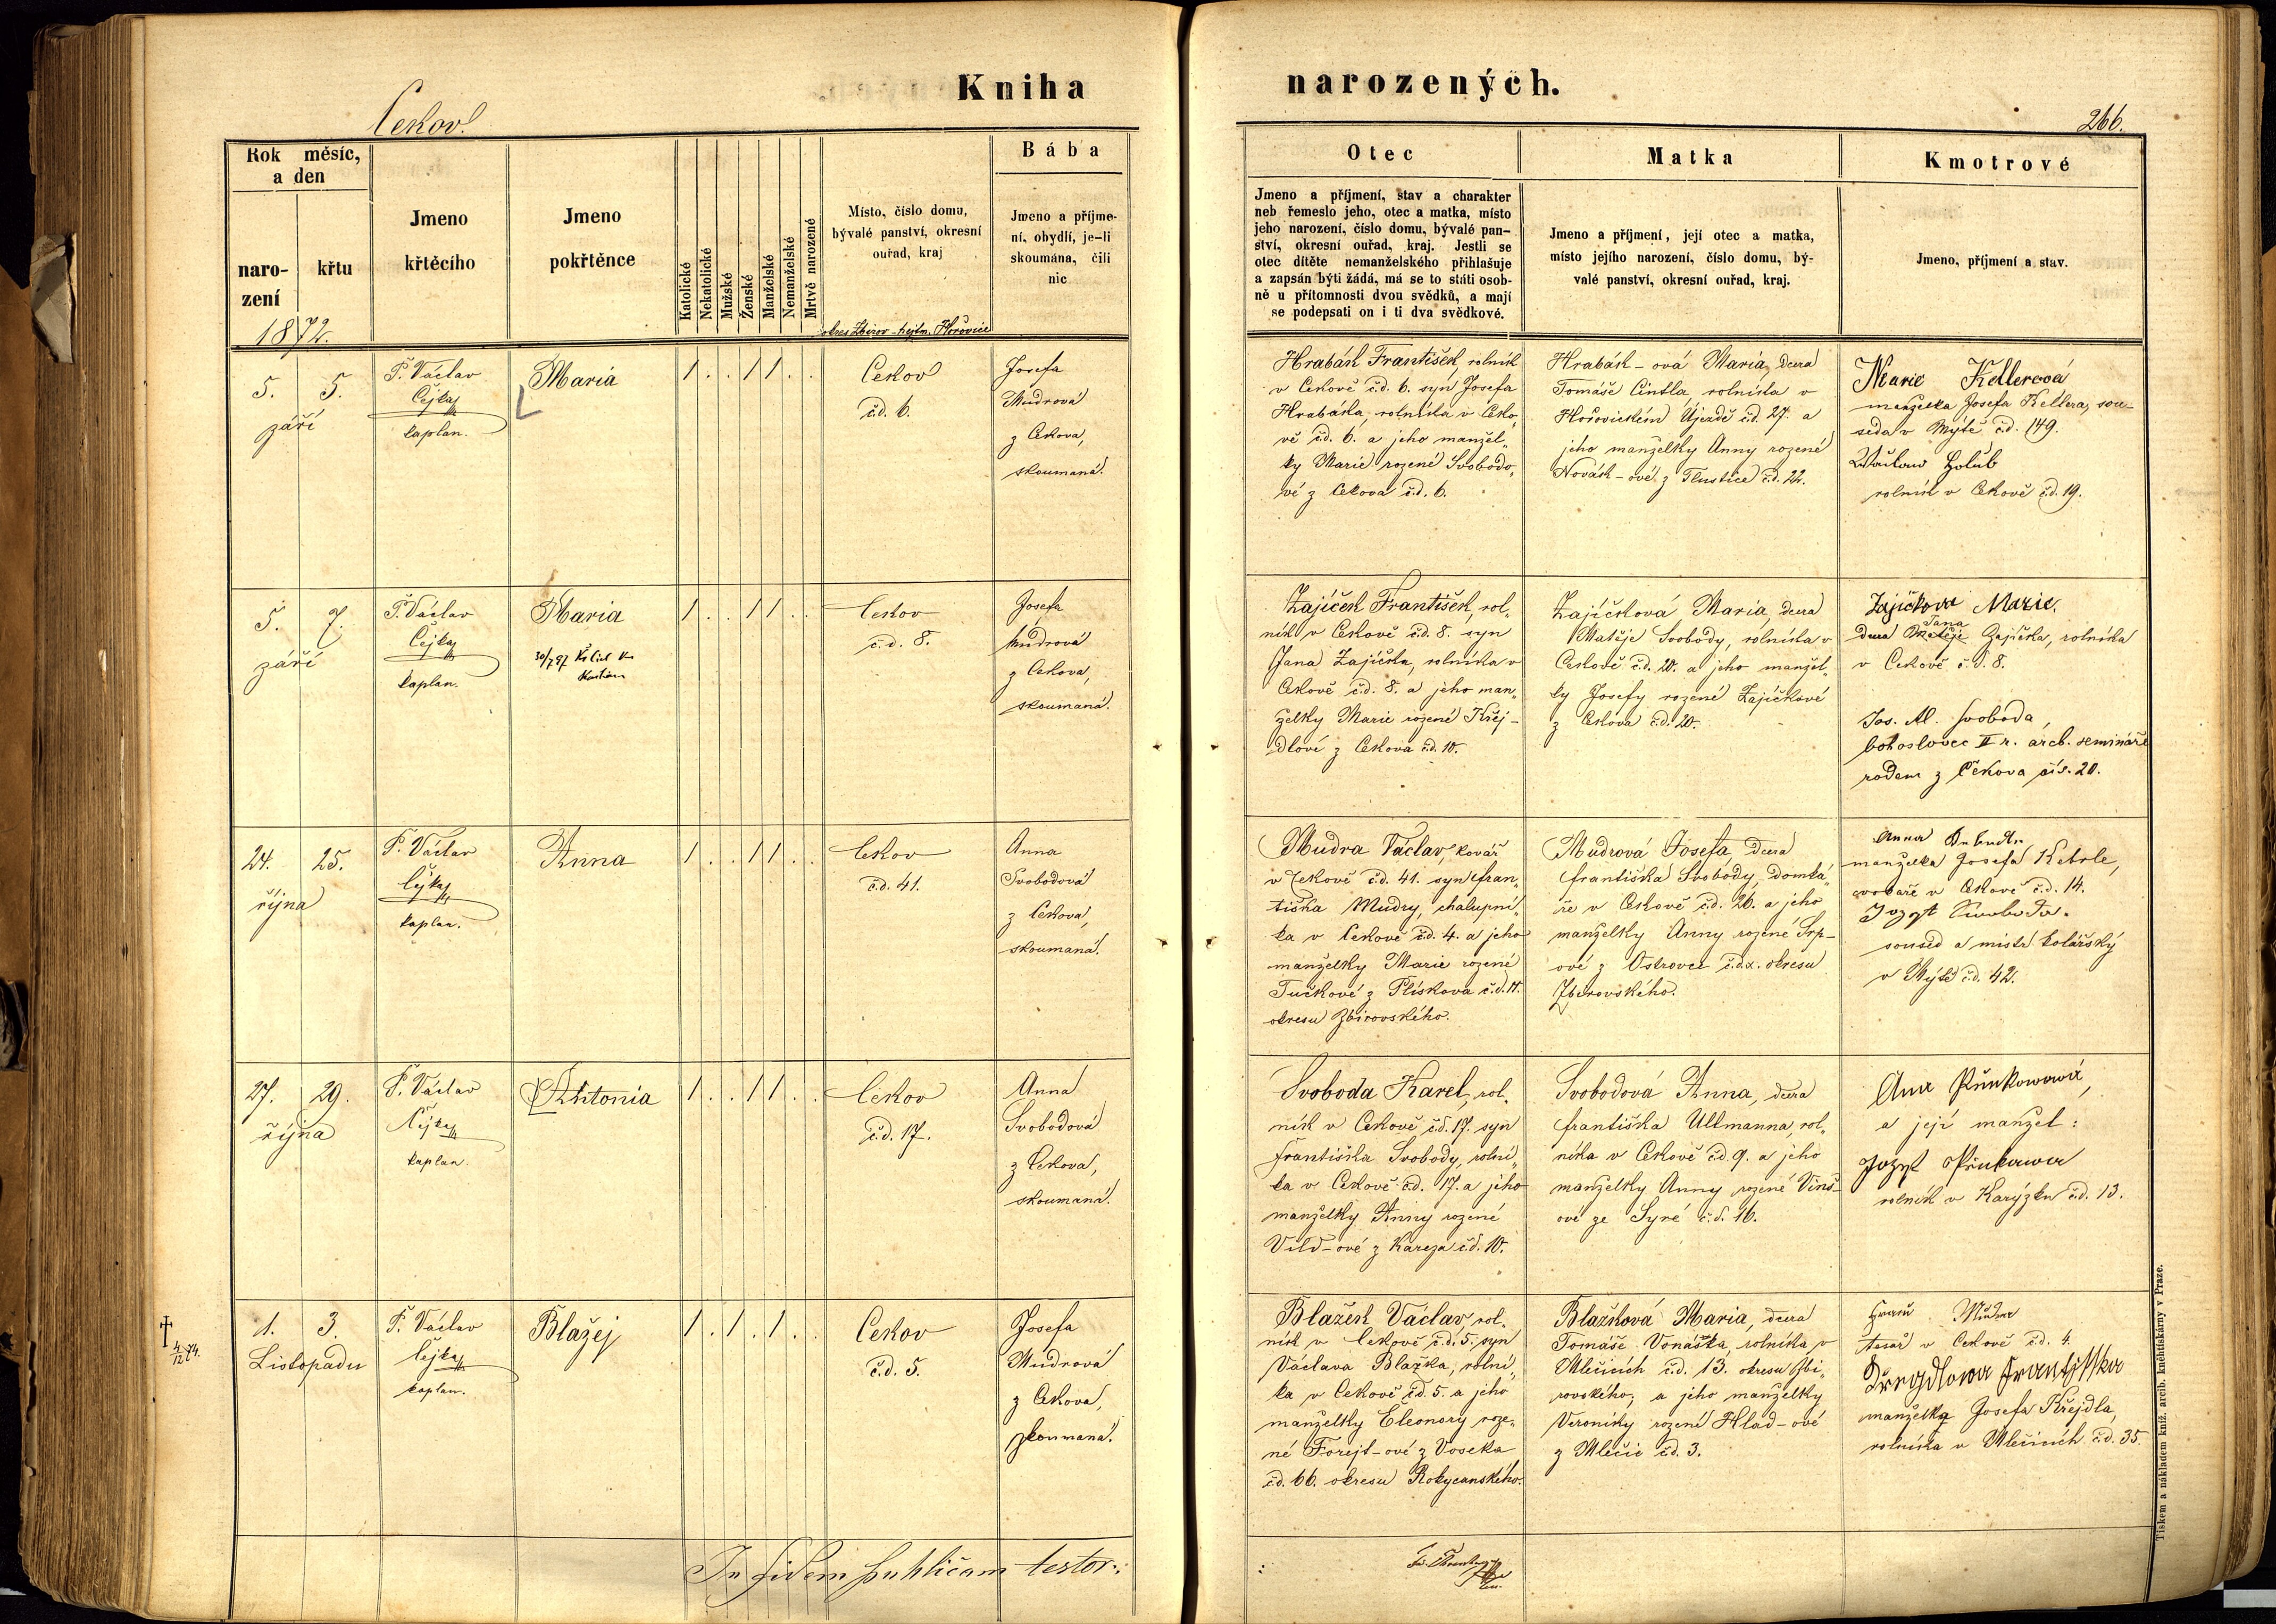 Kniha
narozených.
Cekov.
266.
Rok měsíc,
a den
naro-
zení
křtu
Jmeno
křtěcího
Jmeno
pokřtěnce
Katolické
Nekatolické
Mužské
Ženské
Manželské
Nemanželské
Mrtvě narozené
Místo, číslo domu,
bývalé panství, okresní
ouřad, kraj
Bába
Jmeno a příjme-
ní, obydlí, je-li
skoumána, čili
nic
Otec
Jmeno a příjmení, stav a charakter
neb řemeslo jeho, otec a matka, místo
jeho narození, číslo domu, bývalé pan-
ství, okresní ouřad, kraj. Jestli se
otec dítěte nemanželského přihlašuje
a zapsán býti žádá, má se to státi osob-
ně u přítomnosti dvou svědků, a mají
se podepsati on i ti dva svědkové.
Matka
Jmeno a příjmení, její otec a matka,
místo jejího narození, číslo domu, bý-
valé panství, okresní ouřad, kraj.
Kmotrové
Jmeno, příjmení a stav.
1872.
okres Zbirov - hejtm. Hořovice
5. 5.
září
P. Václav
Čejka
kaplan.
Maria
1 . . 1 1 . .
Cekov
č.d. 6.
Josefa
Mudrová
z Cekova,
skoumaná.
Hrabák František, rolník
v Cekově č.d. 6. syn Josefa
Hrabáka, rolníka v Ceko„
vě č.d. 6. a jeho manžel„
ky Marie rozené Svobodo„
vé z Cekova č.d. 6.
Hrabák-ová Maria, dcera
Tomáše Cintla, rolníka v
Hořovickém Újezdě č.d. 27. a
jeho manželky Anny rozené
Novák-ové z Tlustice č.d. 22.
Marie Kellerová
manželka Josefa Kellera, sou-
seda v Mýtě č.d. 149.
Wáclaw Holub
rolník v Cekově č.d. 19.
5. 7.
září
P. Václav
Čejka
kaplan.
Maria
30/7 97
1 . . 1 1 . .
Cekov
č.d. 8.
Josefa
Mudrová
z Cekova,
skoumaná.
Zajíček František, rol„
ník v Cekově č.d. 8. syn
Jana Zajíčka, rolníka v
Cekově č.d. 8. a jeho man„
želky Marie rozené Křej-
dlové z Cekova č.d. 10.
Zajíčková Maria, dcera
Matěje Svobody, rolníka v
Cekově č.d. 20. a jeho manžel„
ky Josefy rozené Zajíčkové
z Cekova č.d. 20.
Zajíčkova Marie.
dcera Matěje Jana Zajíčka, rolníka
v Cekově č.d. 8.
Jos. Al. Svoboda,
bohoslovec II r. arcb. semináře
rodem z Cekova čís. 20.
24. 25.
října
P. Václav
Čejka
kaplan.
Anna
1 . . 1 1 . .
Cekov
č.d. 41.
Anna
Svobodová
z Cekova,
skoumaná.
Mudra Václav, kovář
v Cekově č.d. 41. syn Fran„
tiška Mudry, chalupní„
ka v Cekově č.d. 4. a jeho
manželky Marie rozené
Tučkové z Plískova č.d. 11.
okresu Zbirovského.
Mudrová Josefa, dcera
Františka Svobody, domká„
ře v Cekově č.d. 26. a jeho
manželky Anny rozené Srp-
ové z Ostrovce č.d. 2. okresu
Zbirovského.
Anna
manželka Josefa Kebrle,
cvokaře v Cekově č.d. 14.
Jozef Swoboda.
soused a mistr kolářský
v Mýtě č.d. 42.
27. 29.
října
P. Václav
Čejka
kaplan.
Antonia
1 . . 1 1 . .
Cekov
č.d. 17.
Anna
Svobodová
z Cekova,
skoumaná.
Svoboda Karel, rol„
ník v Cekově č.d. 17. syn
Františka Svobody, rolní„
ka v Cekově č.d. 17. a jeho
manželky Anny rozené
Vild-ové z Kařeza č.d. 10.
Svobodová Anna, dcera
Františka Ullmanna, rol„
níka v Cekově č.d. 9. a jeho
manželky Anny rozené Vinš-
ové ze Syré č.d. 16.
a její manžel:
rolník v Karýzku č.d. 13.
† 4/12 74.
1. 3.
Listopadu
P. Václav
Čejka
kaplan.
Blažej
1 . 1 . 1 . .
Cekov
č.d. 5.
Josefa
Mudrová
z Cekova,
skoumaná.
Blažek Václav, rol-
ník v Cekově č.d. 5. syn
Václava Blažka, rolní„
ka v Cekově č.d. 5. a jeho
manželky Eleonory roze„
né Forejt-ové z Voseka
č.d. 66. okresu Rokycanského.
Blažková Maria, dcera
Tomáše Vonáška, rolníka v
Mlečicích č.d. 13. okresu Zbi„
rovského, a jeho manželky
Veroniky rozené Hlad-ové
z Mlečic č.d. 3.
Mudra
tesař v Cekově č.d. 4.
Křegdlowa Frantysska
manželka Josefa Křejdla,
rolníka v Mlečicích č.d. 35.
In fidem publicam testor:
Tiskem a nákladem kníž. arcib. kněhtiskárny v Praze.